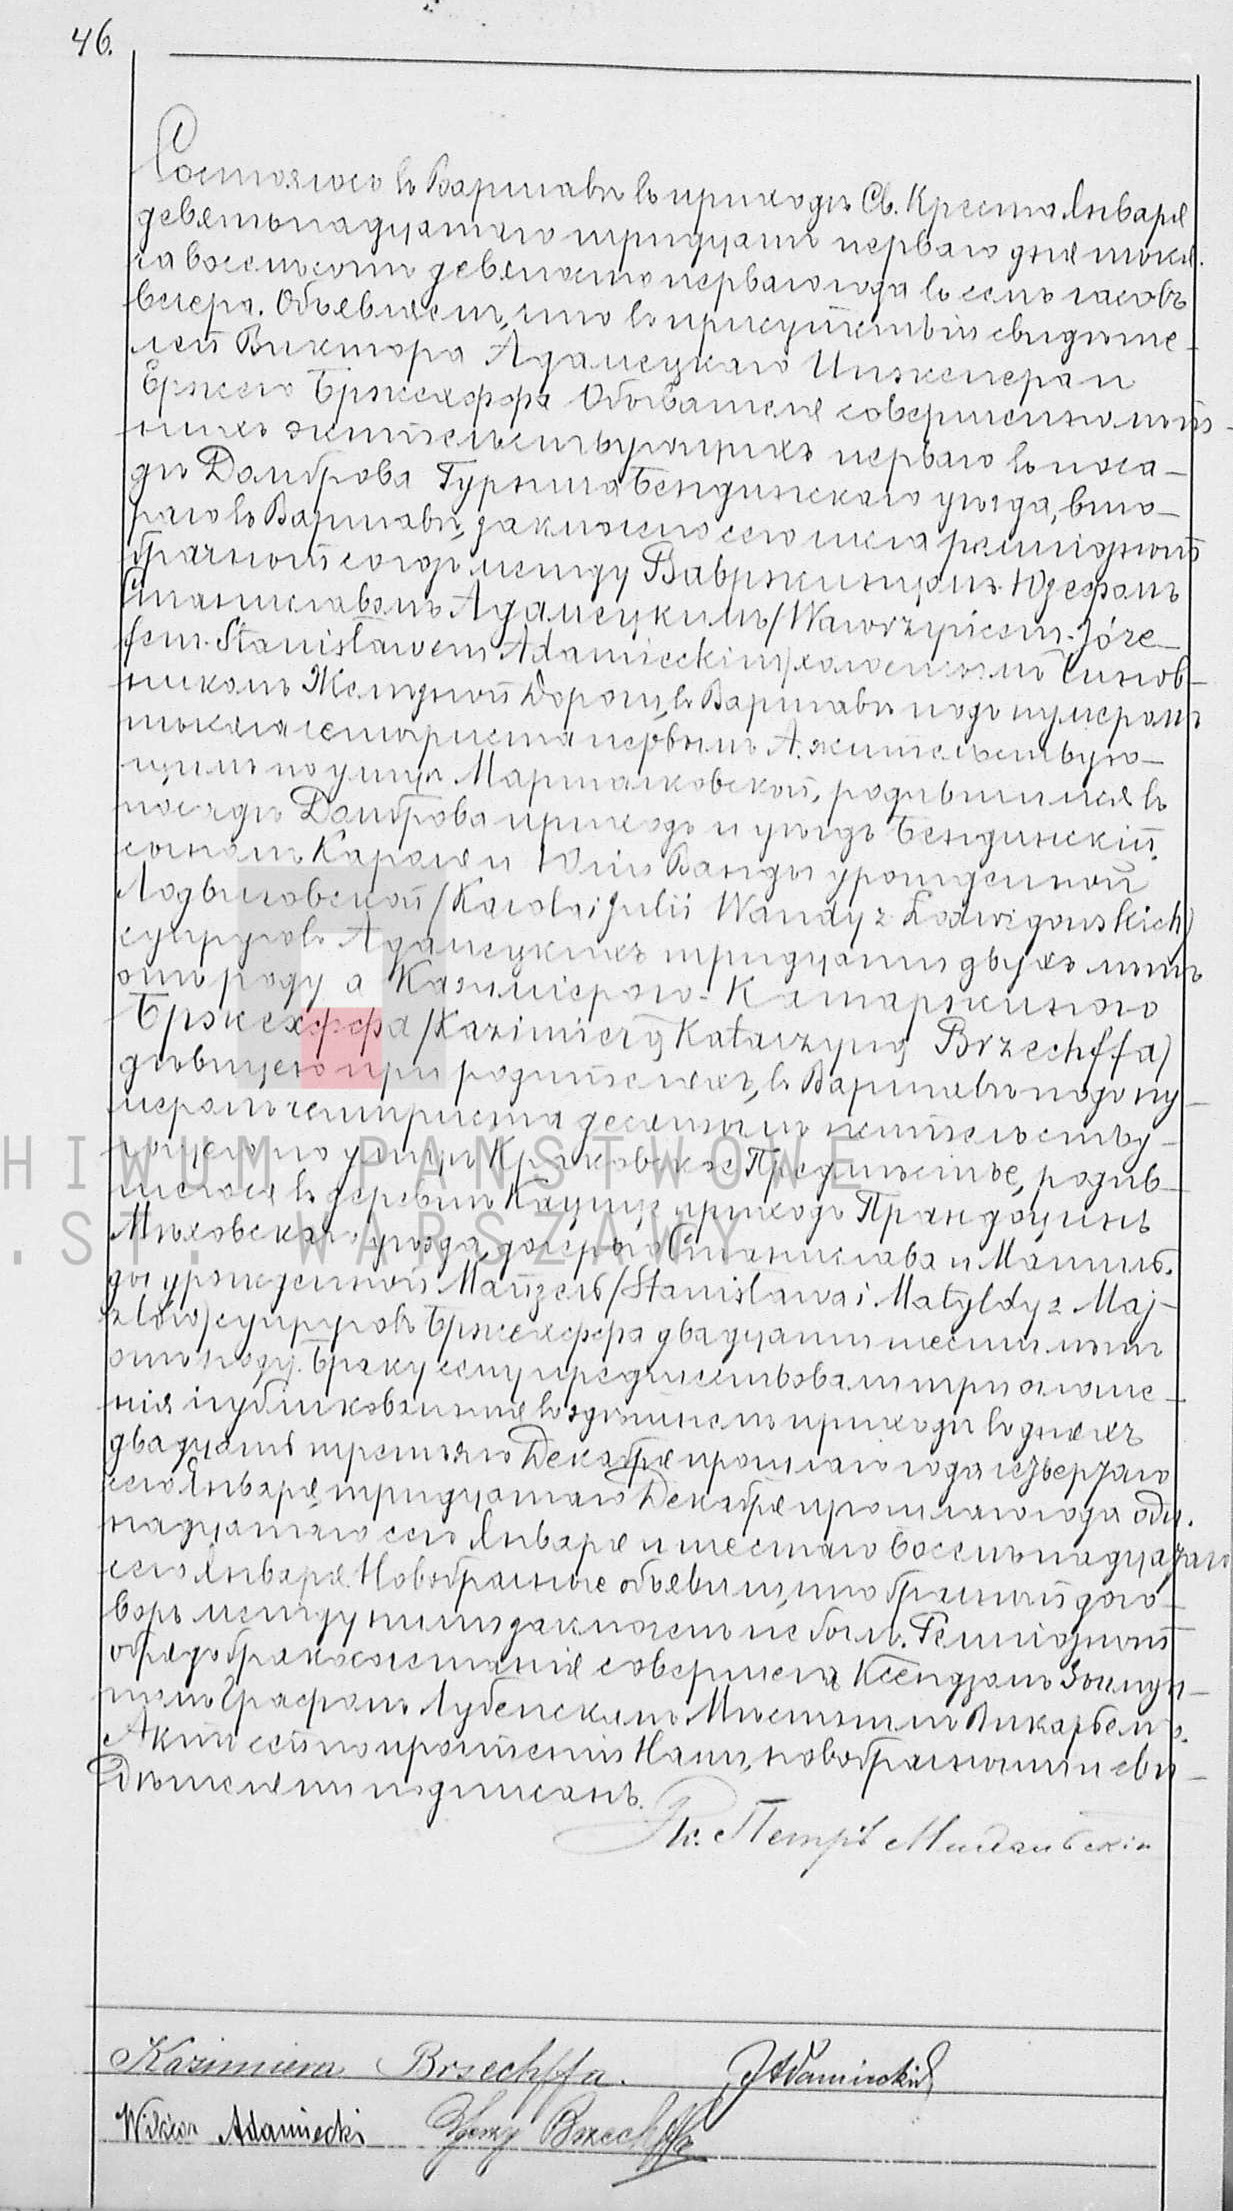 46.
Состоялось въ Варшавѣ въ приходѣ Св. Креста Января
девятьнадцатаго тридцать перваго дня тыся.
ча восемьсотъ девяносто перваго года въ семь часовъ
вечера. Объявляемъ, что въ присутствіи свидѣте-
лей Виктора Адамецкаго Инженера и
Ержего Бржехффа Обывателя совершеннолѣт-
нихъ жительствующихъ перваго въ поса-
дѣ Домброва Гурнича Бендинскаго уѣзда, вто-
раго въ Варшавѣ, заключено сего числа религіозный
брачный союзъ между Вавржинцомъ-Юзефомъ
Станиславомъ Адамецкимъ /Wawrzyńcem-Józe-
fem-Stanisławem Adamieckim/ холостымъ Чинов-
никомъ Желѣзной Дороги, въ Варшавѣ подъ нумеромъ
тысяча четыриста первымъ А. жительствую-
щимъ по улицѣ Маршалковской, родившимся въ
посадѣ Домброва приходъ и уѣздъ Бендинскій,
сыномъ Кароля и Юліи Ванды урожденной
Лодвиговской /Karola i Julii Wandy z Łodwigowskich/
супруговъ Адамецкихъ тридцати двухъ лѣтъ
отъ роду а Казимерою-Катаржиною
Бржехффа /Kazimierą Katarzyną Brzechffa/
дѣвицею при родителяхъ, въ Варшавѣ подъ ну-
меромъ четыриста десятымъ жительству-
ющею по улицѣ Краковское Предмѣстье, родив-
шеюся въ деревнѣ приходъ Прандоцинъ
Мѣховскаго уѣзда, дочерью Станислава и Матиль-
ды урожденной Майзель /Stanisława i Matyldy z Maj-
zlów/ супруговъ Бржехффа двадцати шести лѣтъ
отъ роду. Браку сему предшествовали три оглаше-
нія публикованныя въ здѣшнемъ приходѣ въ дняхъ
двадцать третьяго Декабря прошлаго года четвертаго
сего Января, тридцатаго Декабря прошлаго года оди.
надцатаго сего Января и шестаго восемьнадцатаго
сего Января. Новобрачные объявили, что брачный дого-
воръ между ними заключенъ не былъ. Религіозный
обрядъ бракосочетанія совершенъ Ксендзомъ Зигмун-
томъ Графомъ Лубенскимъ Мѣстнымъ Викарьемъ.
Актъ сей по прочтеніи Нами, новобрачными и сви-
дѣтелями подписанъ.
Кс. Петръ
Kazimiera Brzechffa. J Adamiecki
Wiktor Adamiecki Jerzy Brzechffa
HIWUM PAŃSTWOWE
.ST. WARSZAWY